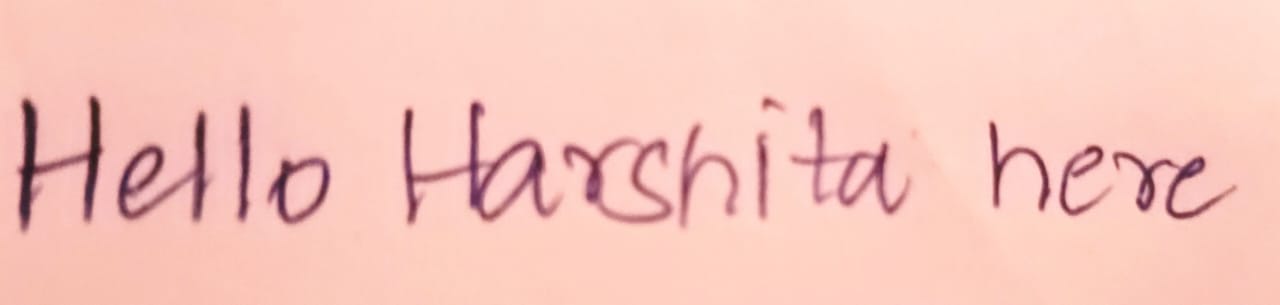 Hello Harshita here